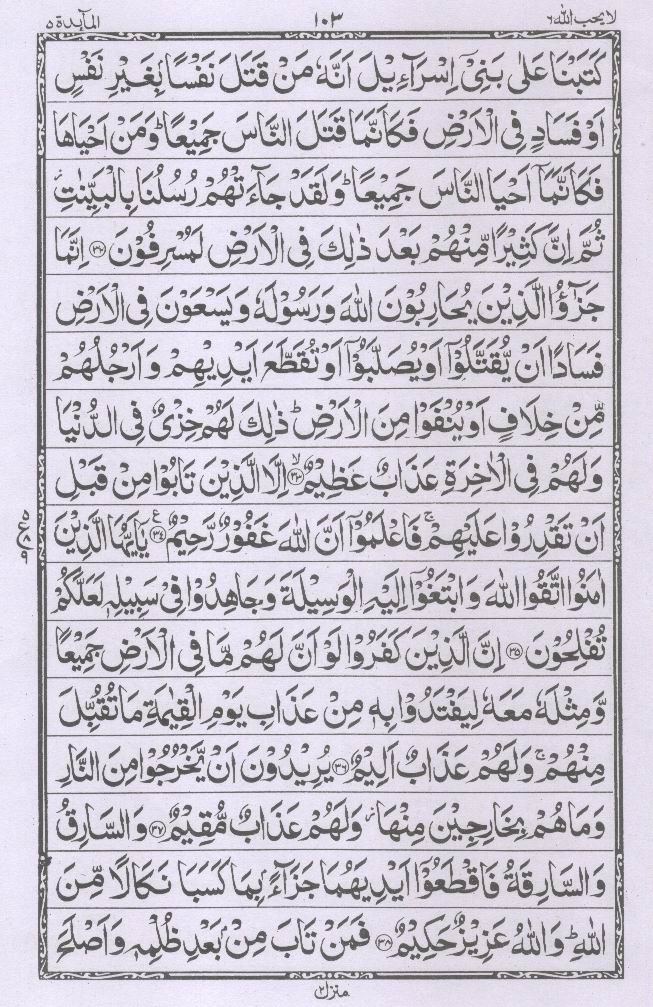 لا یحب الله ٦ ١٠٣ المآىٕدة ٥
كَتَبْنَا عَلٰى بَنِیْۤ اِسْرَآءِیْلَ اَنَّهٗ مَنْ قَتَلَ نَفْسًۢا بِغَیْرِ نَفْسٍ
اَوْ فَسَادٍ فِی الْاَرْضِ فَكَاَنَّمَا قَتَلَ النَّاسَ جَمِیْعًاؕ وَ مَنْ اَحْیَاهَا
فَكَاَنَّمَاۤ اَحْیَا النَّاسَ جَمِیْعًاؕ وَ لَقَدْ جَآءَتْهُمْ رُسُلُنَا بِالْبَیِّنٰتِ٘
ثُمَّ اِنَّ كَثِیْرًا مِّنْهُمْ بَعْدَ ذٰلِكَ فِی الْاَرْضِ لَمُسْرِفُوْنَ ﴿۳۲﴾ اِنَّمَا
جَزٰٓؤُا الَّذِیْنَ یُحَارِبُوْنَ اللّٰهَ وَ رَسُوْلَهٗ وَ یَسْعَوْنَ فِی الْاَرْضِ
فَسَادًا اَنْ یُّقَتَّلُوْۤا اَوْ یُصَلَّبُوْۤا اَوْ تُقَطَّعَ اَیْدِیْهِمْ وَ اَرْجُلُهُمْ
مِّنْ خِلَافٍ اَوْ یُنْفَوْا مِنَ الْاَرْضِؕ ذٰلِكَ لَهُمْ خِزْیٌ فِی الدُّنْیَا
وَ لَهُمْ فِی الْاٰخِرَةِ عَذَابٌ عَظِیْمٌ ﴿۳۳﴾ۙ اِلَّا الَّذِیْنَ تَابُوْا مِنْ قَبْلِ
اَنْ تَقْدِرُوْا عَلَیْهِمْۚ فَاعْلَمُوْۤا اَنَّ اللّٰهَ غَفُوْرٌ رَّحِیْمٌ ﴿۳۴﴾ ع یٰۤاَیُّهَا الَّذِیْنَ
ع ٥ ٨ ٩
اٰمَنُوا اتَّقُوا اللّٰهَ وَ ابْتَغُوْۤا اِلَیْهِ الْوَسِیْلَةَ وَ جَاهِدُوْا فِیْ سَبِیْلِهٖ لَعَلَّكُمْ
تُفْلِحُوْنَ ﴿۳۵﴾ اِنَّ الَّذِیْنَ كَفَرُوْا لَوْ اَنَّ لَهُمْ مَّا فِی الْاَرْضِ جَمِیْعًا
وَّ مِثْلَهٗ مَعَهٗ لِیَفْتَدُوْا بِهٖ مِنْ عَذَابِ یَوْمِ الْقِیٰمَةِ مَا تُقُبِّلَ
مِنْهُمْۚ وَ لَهُمْ عَذَابٌ اَلِیْمٌ ﴿۳۶﴾ یُرِیْدُوْنَ اَنْ یَّخْرُجُوْا مِنَ النَّارِ
وَ مَا هُمْ بِخٰرِجِیْنَ مِنْهَا٘ وَ لَهُمْ عَذَابٌ مُّقِیْمٌ ﴿۳۷﴾ وَ السَّارِقُ
وَ السَّارِقَةُ فَاقْطَعُوْۤا اَیْدِیَهُمَا جَزَآءًۢ بِمَا كَسَبَا نَكَالًا مِّنَ
اللّٰهِؕ وَ اللّٰهُ عَزِیْزٌ حَكِیْمٌ ﴿۳۸﴾ فَمَنْ تَابَ مِنْۢ بَعْدِ ظُلْمِهٖ وَ اَصْلَحَ
منزل ٢